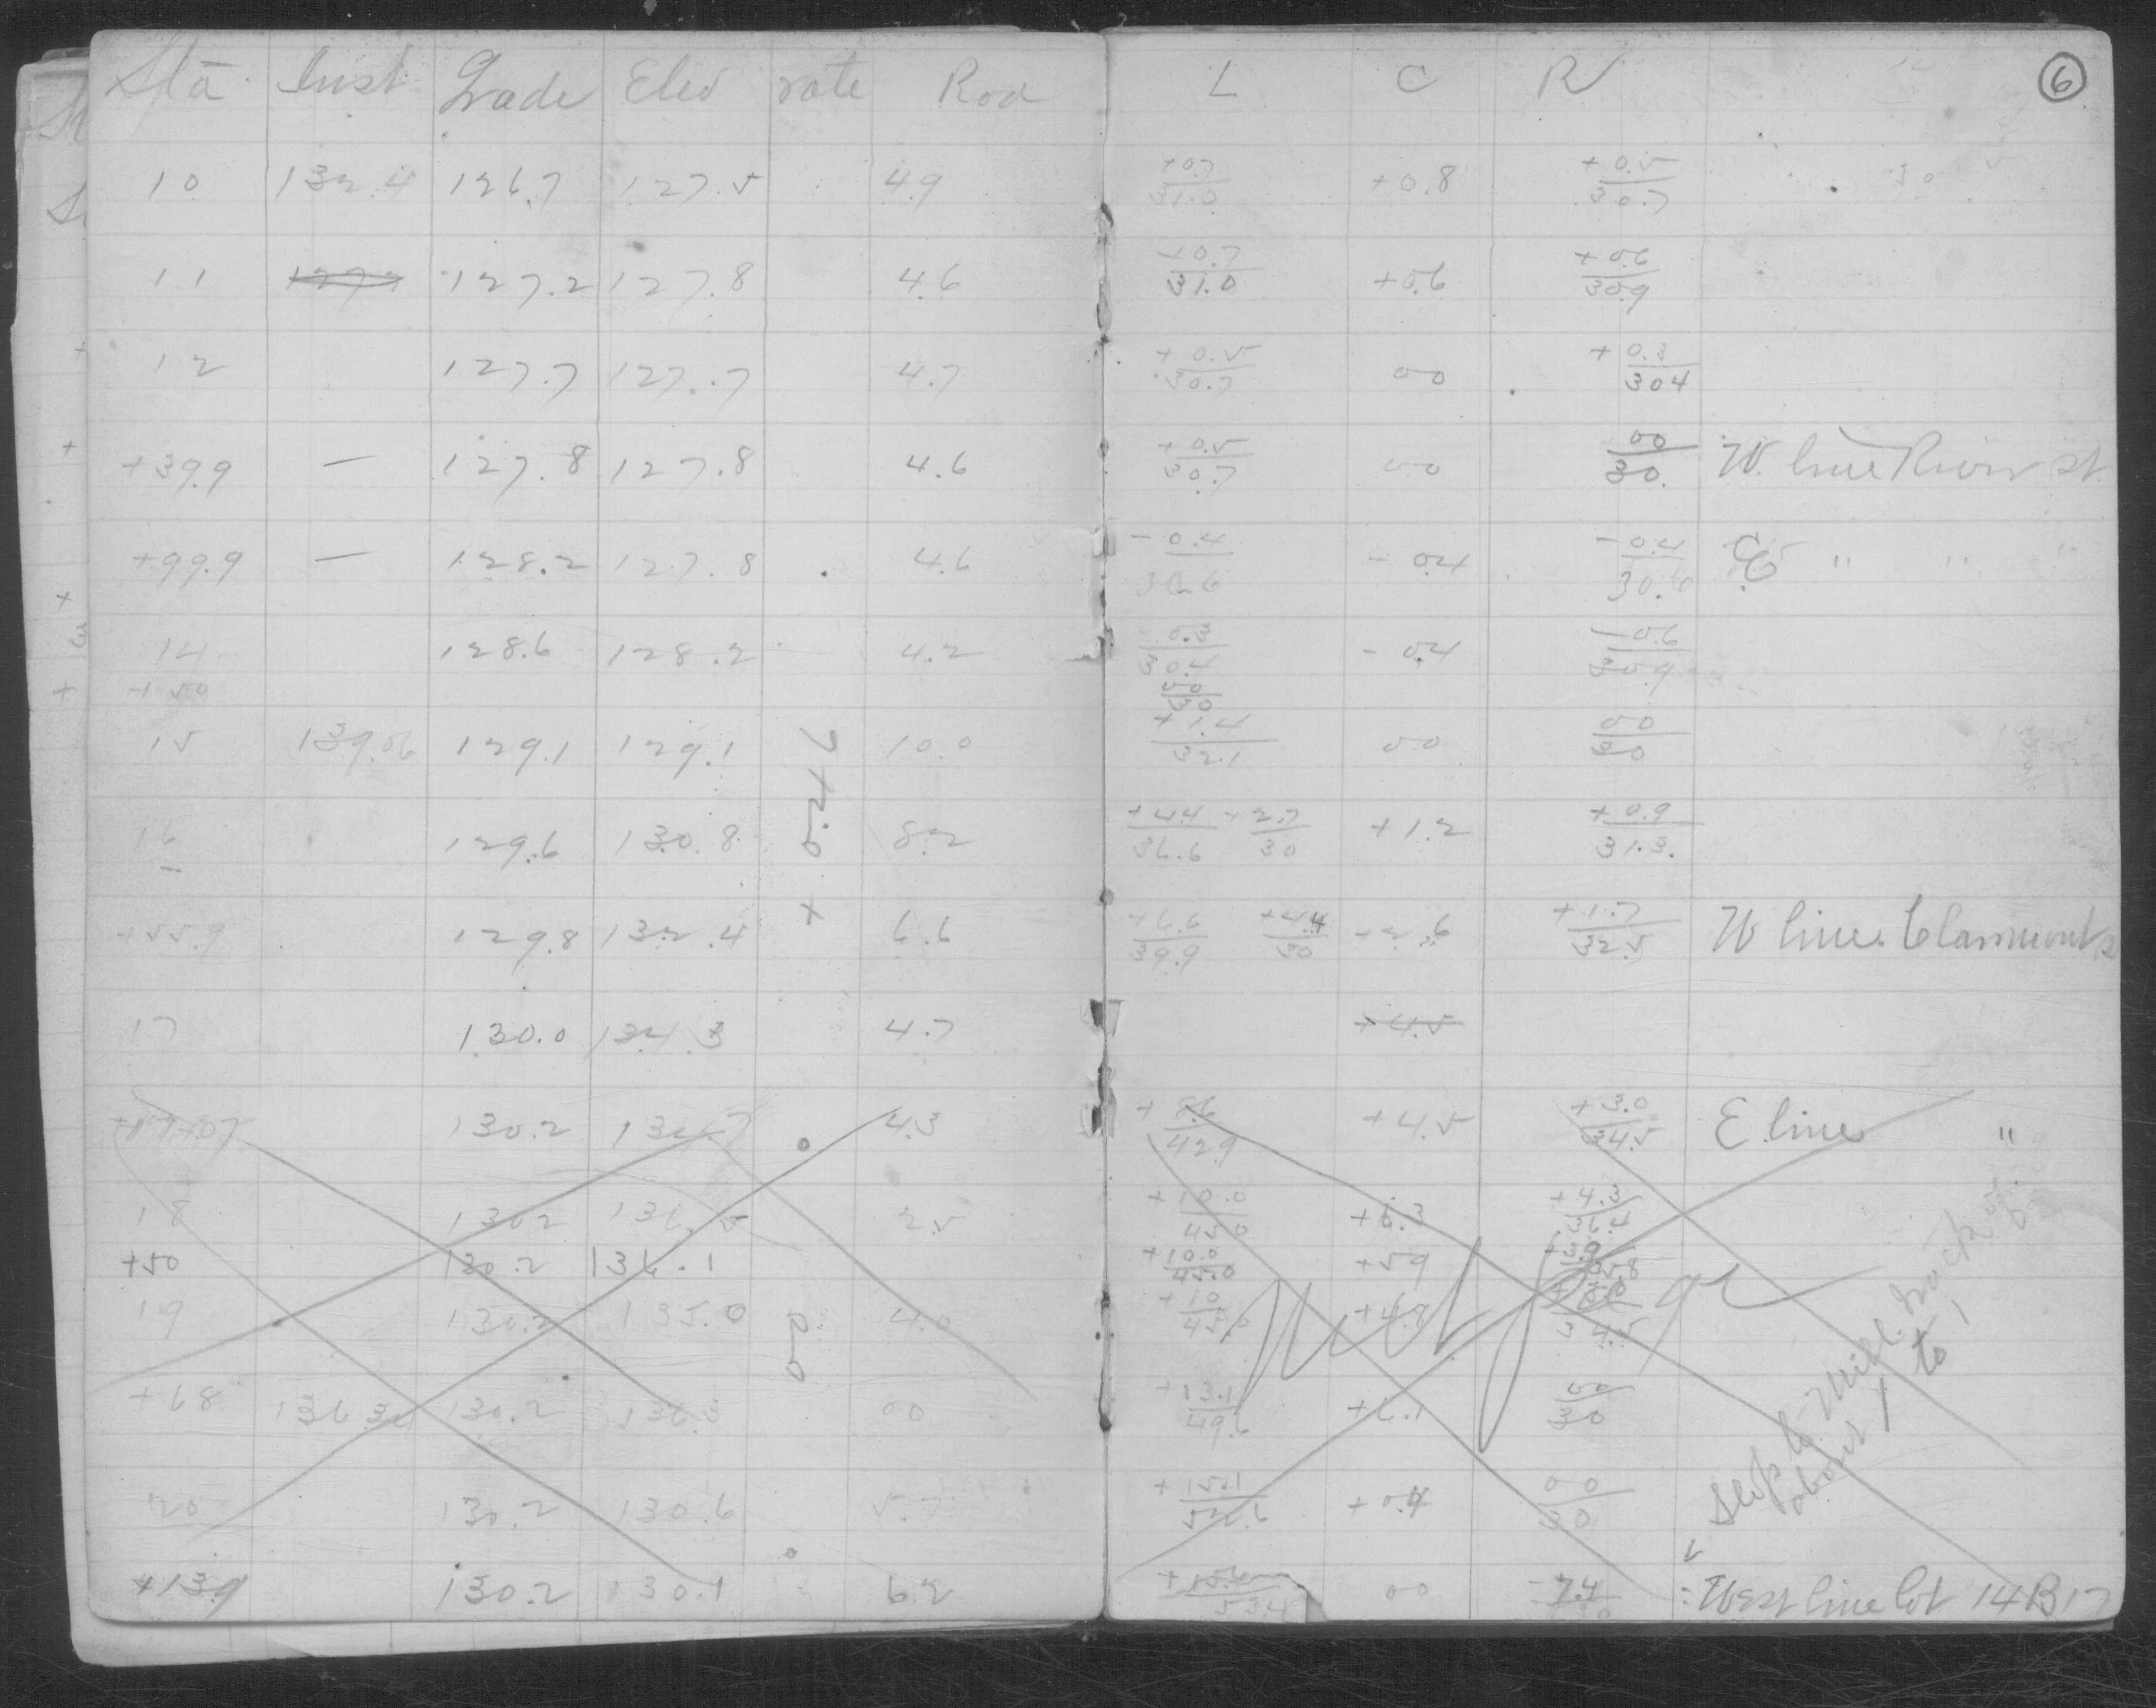 Sta Inst Grade Elev rate Rod L C R 6
10 132.4 126.7 127.5 4.9 +0.7/31.0 +0.8 +0.5/30.7
11 127.2 127.8 4.6 +0.7/31.0 +0.6 +0.6/30.9
12 127.7 127.7 4.7 +0.5/30.7 00 +0.3/30.4
+39.9 — 127.8 127.8 4.6 +0.5/30.7 0.0 00/30. W. line River st
+99.9 — 128.2 127.8 4.6 -0.4/30.6 -0.4 -0.4/30.6 E " " "
14 128.6 128.2 4.2 -0.3/30.4 -0.4 -0.6/30.9
+50 00/30
15 139.06 129.1 129.1 10.0 +1.4/32.1 0.0 00/30
+0.47
16 129.6 130.8 8.2 +4.4/36.6 +2.7/30 +1.2 +0.9/31.3
+55.9 129.8 132.4 6.6 +6.6/39.9 +4.4/30 +2.6 +1.7/32.5 W line Claremont
17 130.0 134.3 4.7 +4.5
+17+07 130.2 134.7 4.3 +8.6/42.9 +4.5 +3.0/34.5 E line "
18 130.2 136.5 2.5 +10.0/45.0 +6.3 +4.3/36.4
+50 130.2 136.1 +10.0/45.0 +5.9
19 130.2 135.0 4.0 +10/45.0 +4.8 34.5
0.0
+68 136.3 130.2 136.3 00 +13.1/49.6 +6.1 00/30
20 130.2 130.6 5.7 +15.1/52.6 +0.4 00/30
+139 130.2 130.1 6.2 00 -7.4 West line lot 14 B 17
Slip to Mill track
about 1 to 1